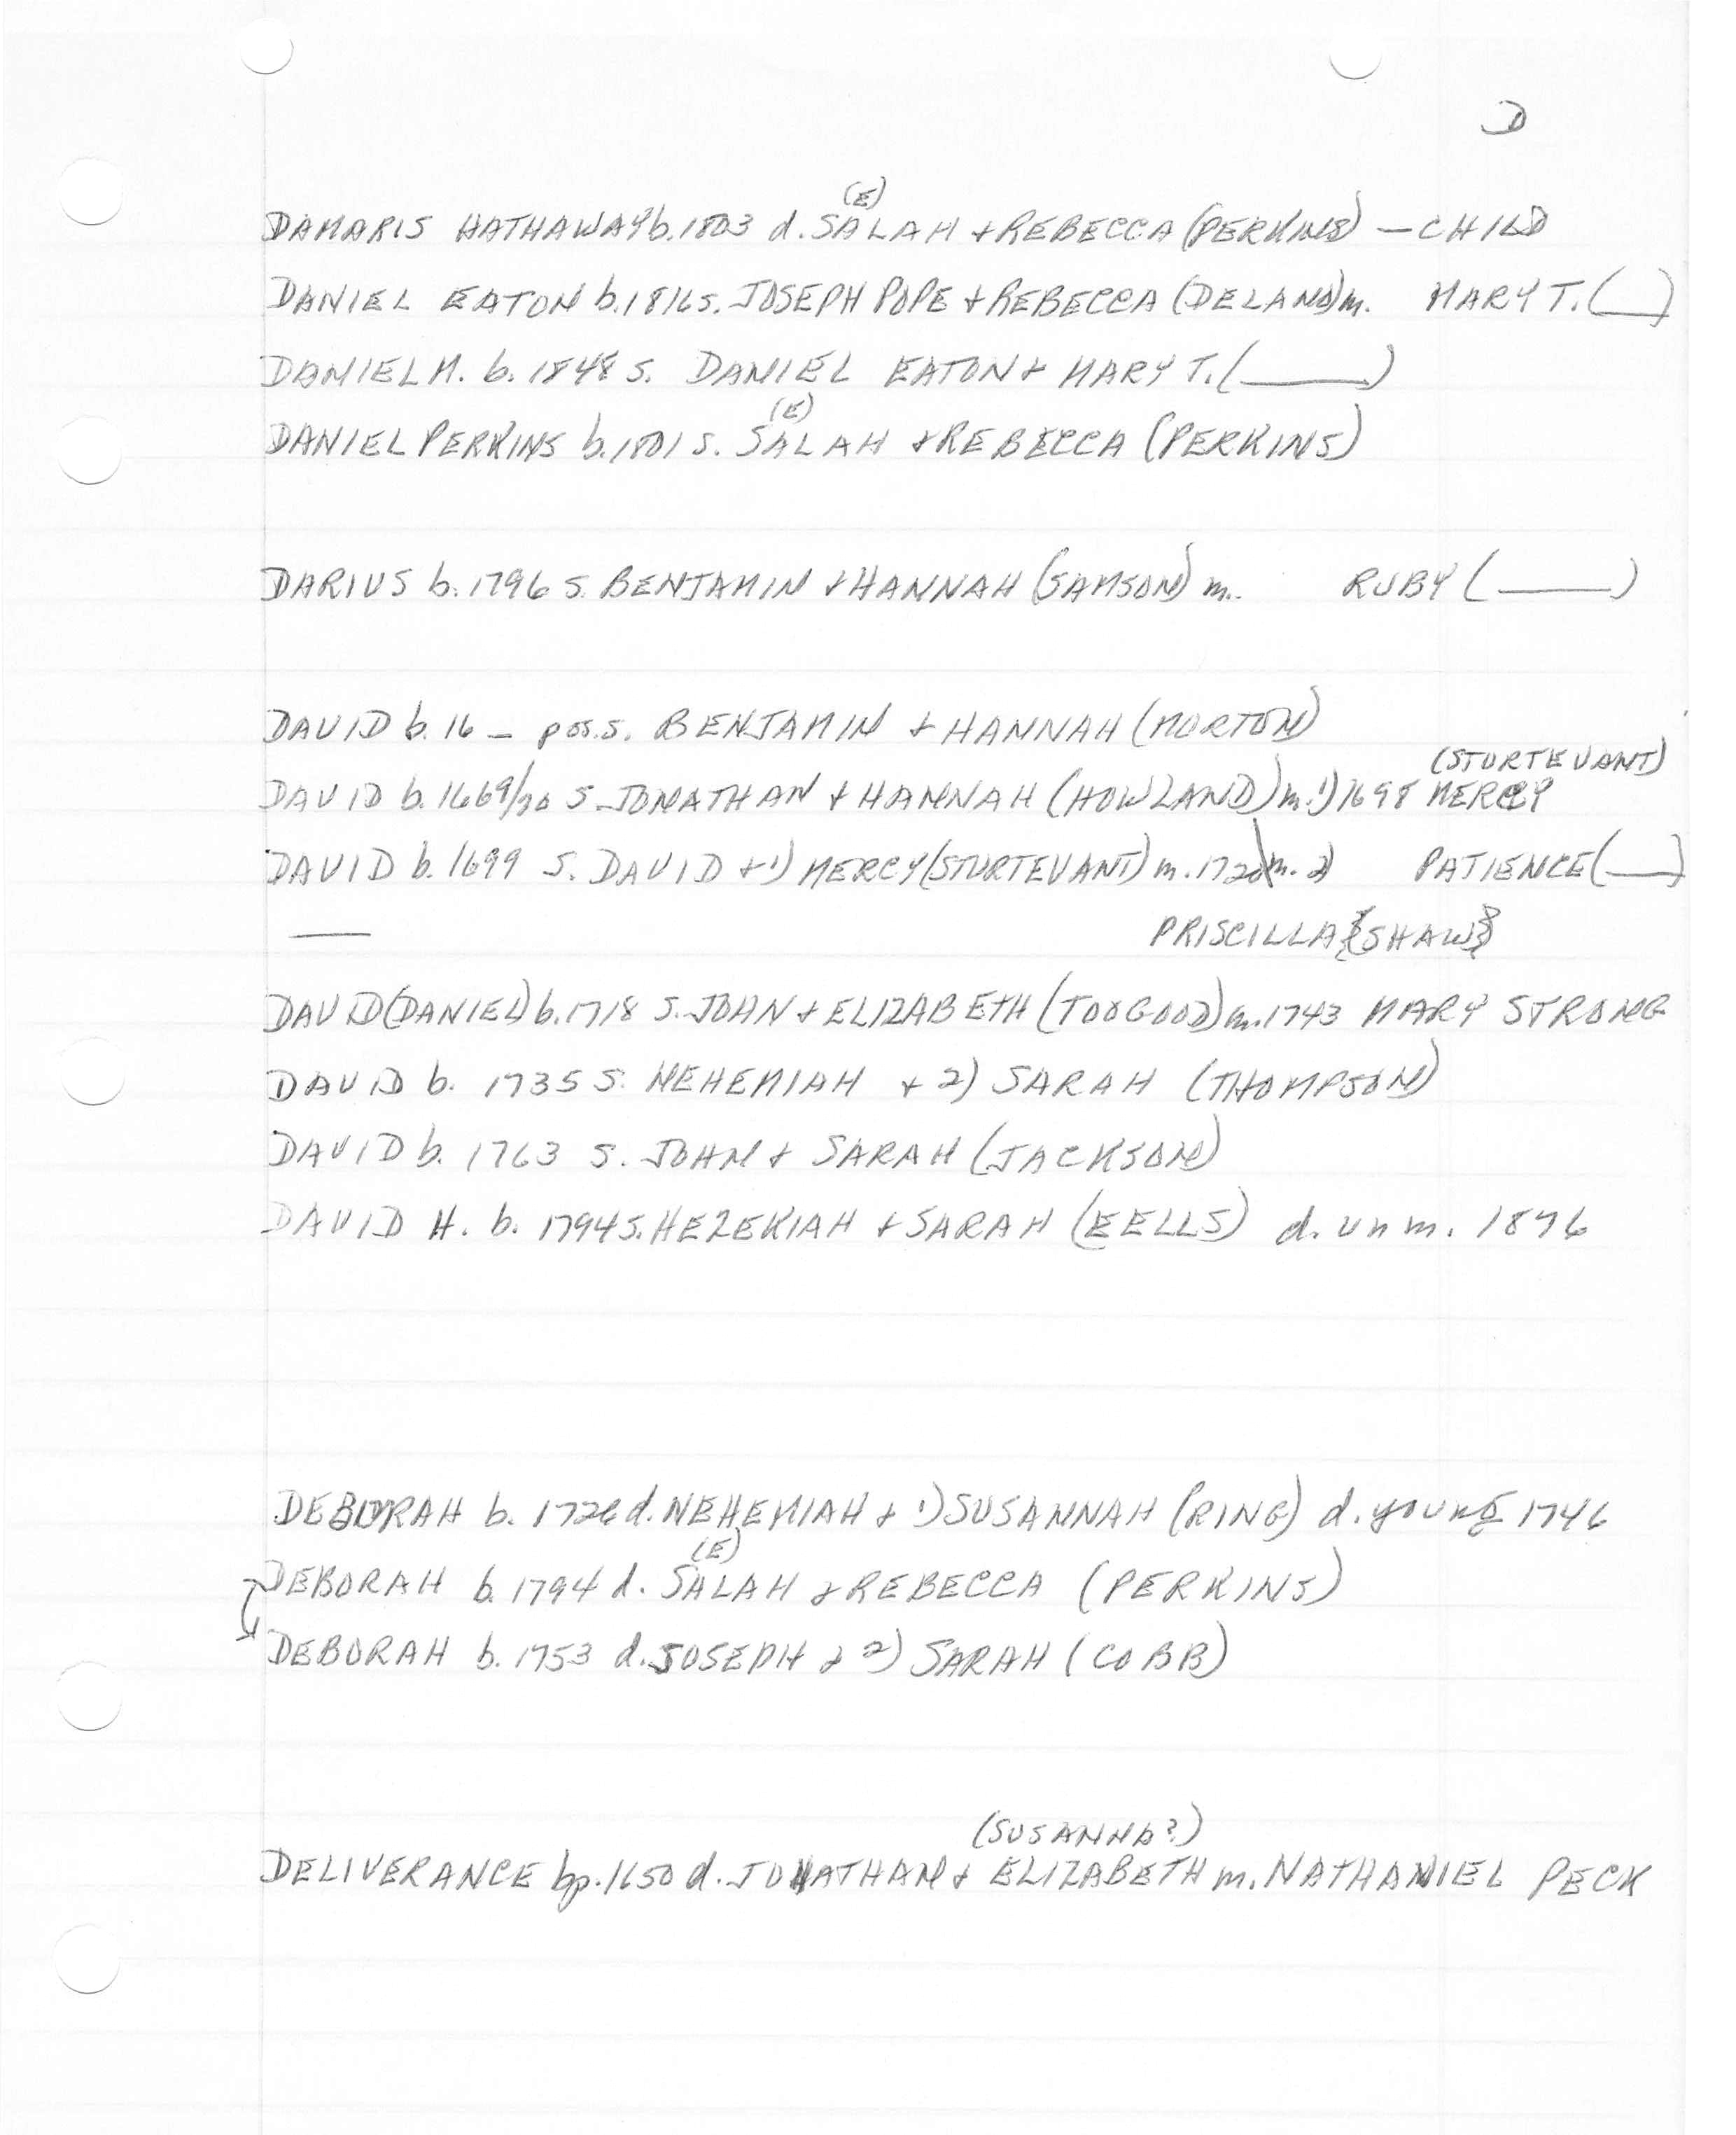 D
(E)
DAMARIS HATHAWAY b. 1803 d. SALAH + REBECCA (PERKINS) — CHILD
DANIEL EATON b. 1816 s. JOSEPH POPE + REBECCA (DELAND) m. MARY T. (__)
DANIEL M. b. 1848 s. DANIEL EATON + MARY T. (____)
(E)
DANIEL PERKINS b. 1801 s. SALAH + REBECCA (PERKINS)
DARIUS b. 1796 s. BENJAMIN + HANNAH (SAMSON) m. RUBY (____)
DAVID b. 16 — pos. s. BENJAMIN + HANNAH (MORTON)
(STURTEVANT)
DAVID b. 1669/70 s. JONATHAN + HANNAH (HOWLAND) m. 1) 1698 MERCY
DAVID b. 1699 s. DAVID + 1) MERCY (STURTEVANT) m. 1720 m. 2) PATIENCE (__)
— PRISCILLA {SHAW}
DAVID (DANIEL) b. 1718 s. JOHN + ELIZABETH (TOOGOOD) m. 1743 MARY STRONG
DAVID b. 1735 s. NEHEMIAH + 2) SARAH (THOMPSON)
DAVID b. 1763 s. JOHN + SARAH (JACKSON)
DAVID H. b. 1794 s. HEZEKIAH + SARAH (EELLS) d. unm. 1876
DEBORAH b. 1726 d. NEHEMIAH + 1) SUSANNAH (RING) d. young 1746
(E)
DEBORAH b. 1794 d. SALAH + REBECCA (PERKINS)
DEBORAH b. 1753 d. JOSEPH + 2) SARAH (COBB)
(SUSANNA?)
DELIVERANCE bp. 1650 d. JONATHAN + ELIZABETH m. NATHANIEL PECK